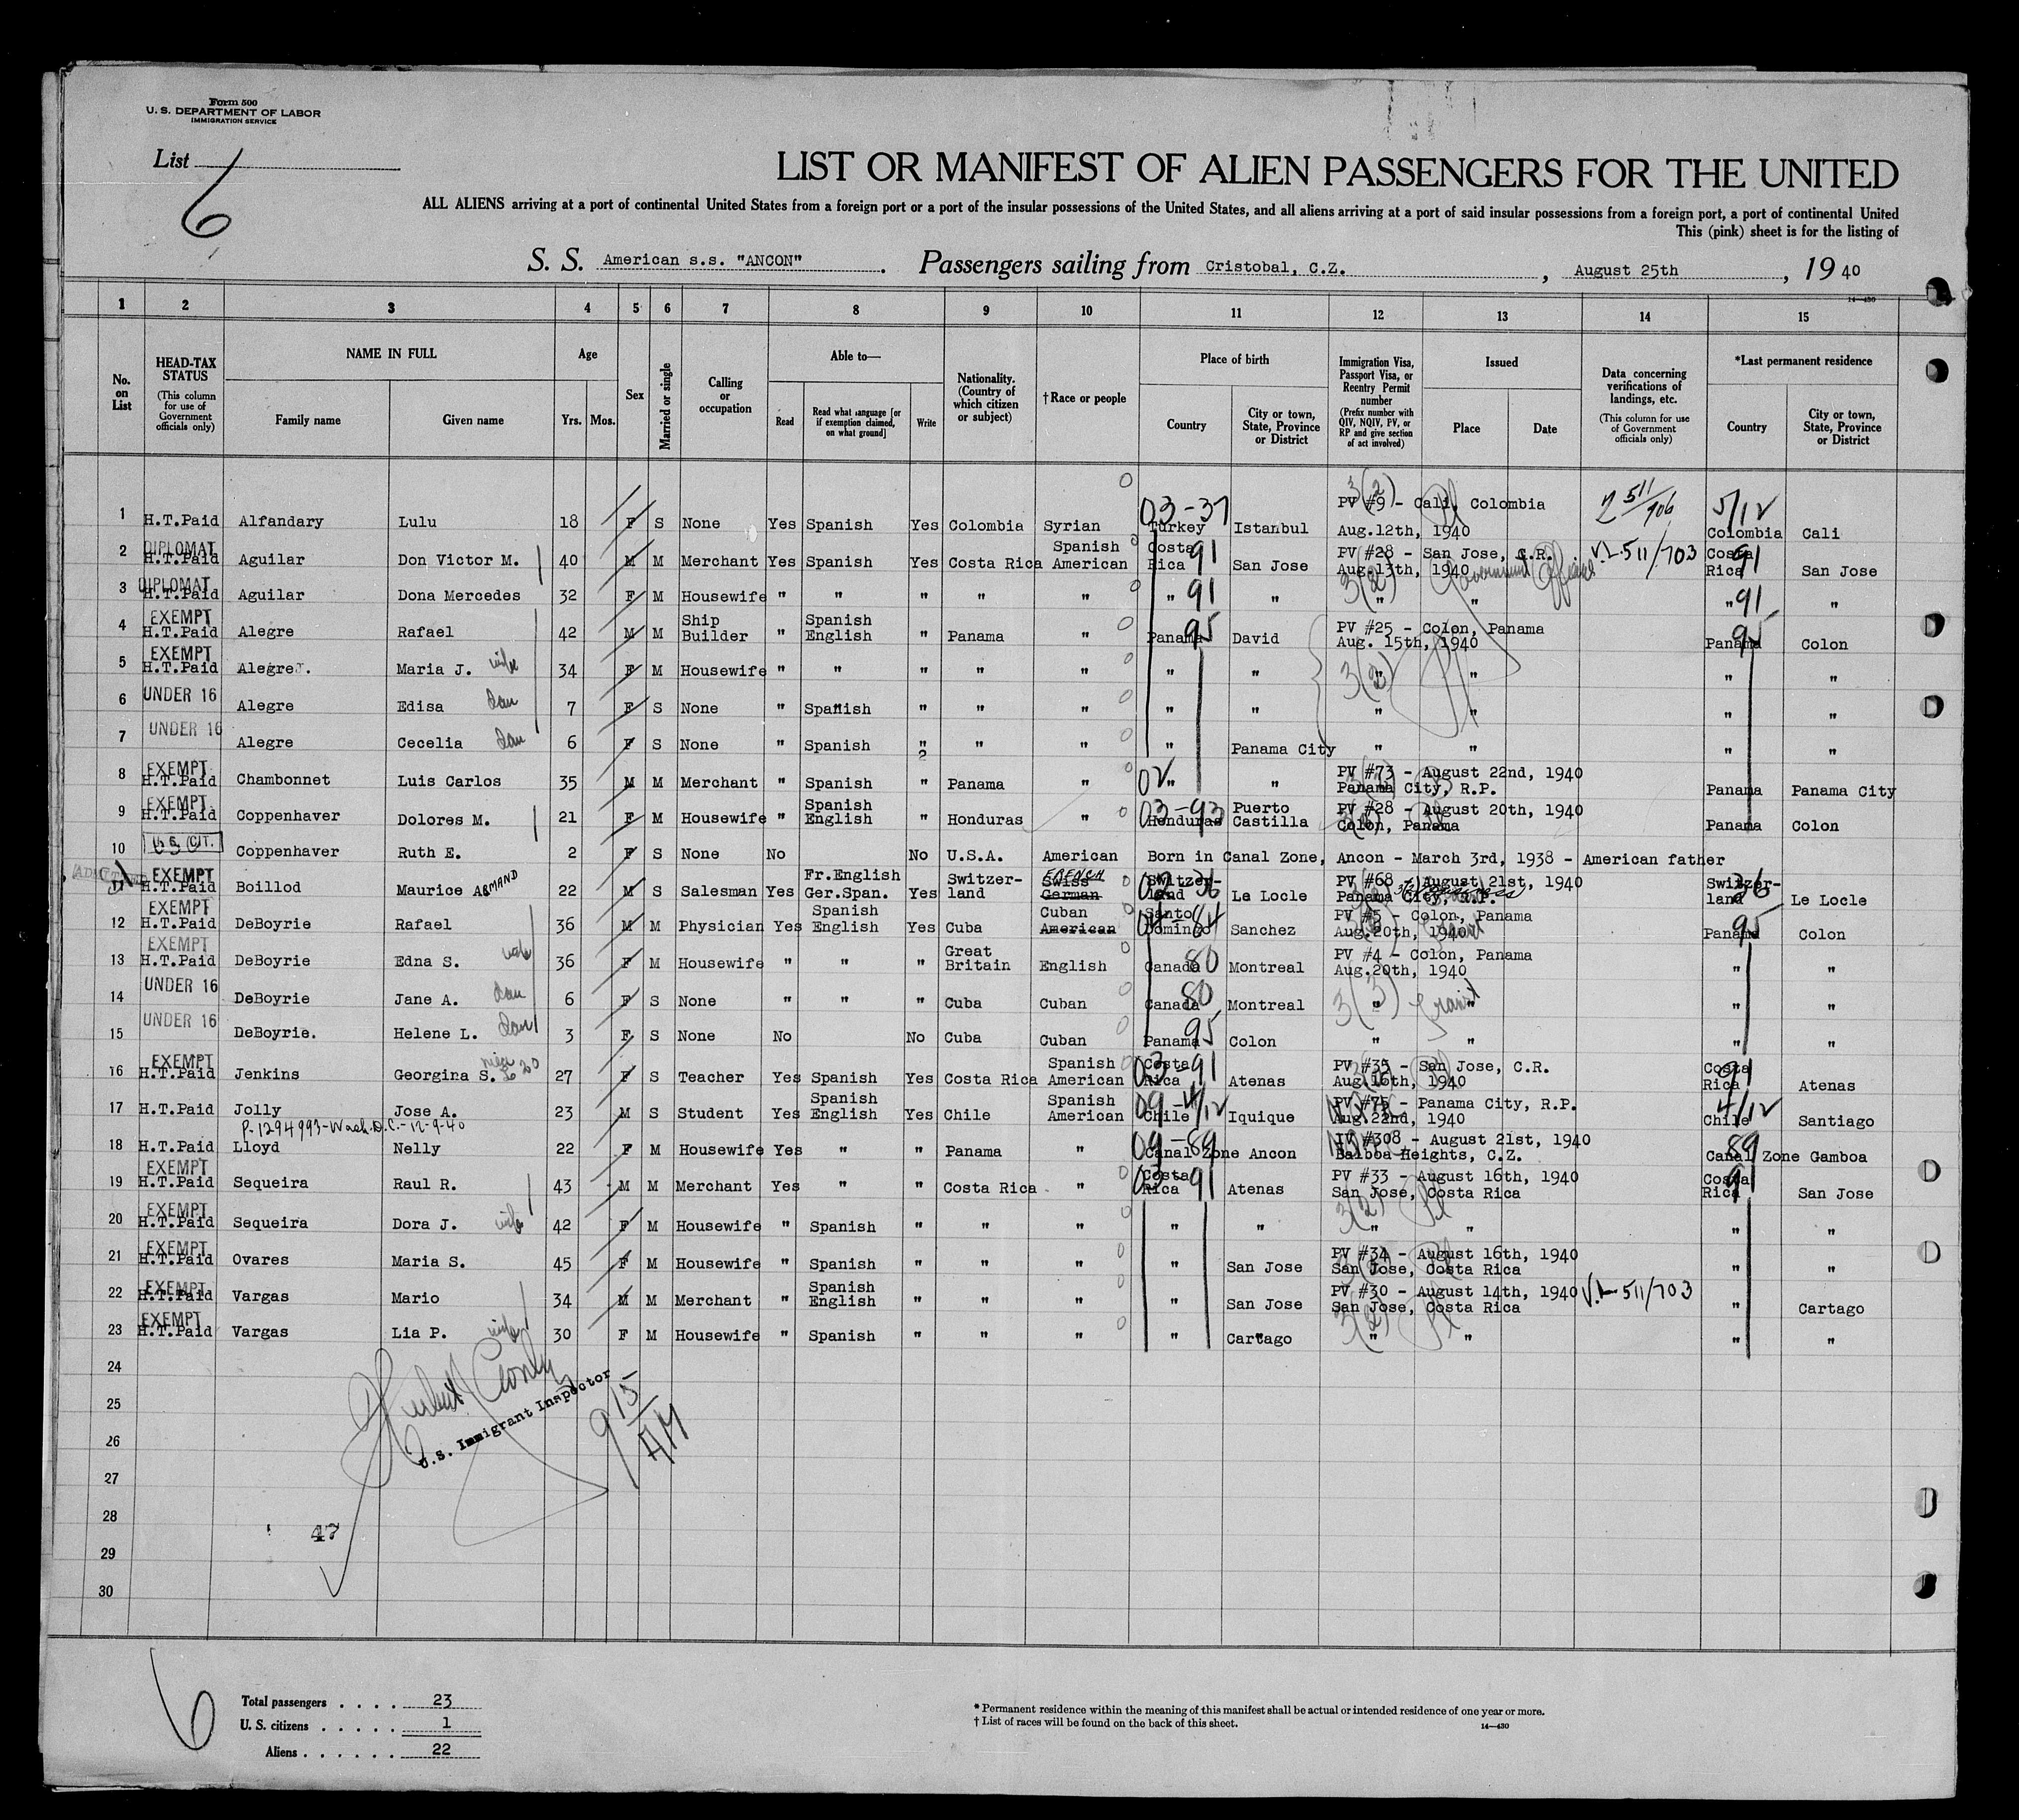 Form 500
U. S. DEPARTMENT OF LABOR
IMMIGRATION SERVICE
List 6
LIST OR MANIFEST OF ALIEN PASSENGERS FOR THE UNITED
ALL ALIENS arriving at a port of continental United States from a foreign port or a port of the insular possessions of the United States, and all aliens arriving at a port of said insular possessions from a foreign port, a port of continental United
This (pink) sheet is for the listing of
S. S. American s.s. "ANCON". Passengers sailing from Cristobal, C.Z., August 25th, 1940
14—430
1 2 3 4 5 6 7 8 9 10 11 12 13 14 15
No. on List
HEAD-TAX STATUS (This column for use of Government officials only)
NAME IN FULL Family name Given name
Age Yrs. Mos.
Sex
Married or single
Calling or occupation
Able to— Read Read what language [or if exemption claimed, on what ground] Write
Nationality. (Country of which citizen or subject)
†Race or people
Place of birth Country City or town, State, Province or District
Immigration Visa, Passport Visa, or Reentry Permit number (Prefix number with QIV, NQIV, PV, or RP and give section of act involved)
Issued Place Date
Data concerning verifications of landings, etc. (This column for use of Government officials only)
*Last permanent residence Country City or town, State, Province or District
1 H.T.Paid Alfandary Lulu 18 F S None Yes Spanish Yes Colombia Syrian 03-37 Turkey Istanbul PV #9 - Cali, Colombia Aug.12th, 1940 3(2) 2 511/706 5/12 Colombia Cali
2 DIPLOMAT H.T.Paid Aguilar Don Victor M. 40 M M Merchant Yes Spanish Yes Costa Rica Spanish American Costa Rica 91 San Jose PV #28 - San Jose, C.R. Aug.13th, 1940 Government Official V.L. 511/703 Costa Rica 91 San Jose
3 DIPLOMAT H.T.Paid Aguilar Dona Mercedes 32 F M Housewife " " " " " " 91 " 3(2) " " " 91 "
4 EXEMPT H.T.Paid Alegre Rafael 42 M M Ship Builder " Spanish English " Panama " Panama 95 David PV #25 - Colon, Panama Aug. 15th, 1940 Panama 95 Colon
5 EXEMPT H.T.Paid Alegre Maria J. wife 34 F M Housewife " " " " " " " 3(2) " " "
6 UNDER 16 Alegre Edisa dau 7 F S None " Spanish " " " " " " " " "
7 UNDER 16 Alegre Cecelia dau 6 F S None " Spanish " " " " Panama City " " " "
8 EXEMPT H.T.Paid Chambonnet Luis Carlos 35 M M Merchant " Spanish " Panama " 02 " " PV #73 - August 22nd, 1940 Panama City, R.P. Panama Panama City
9 EXEMPT H.T.Paid Coppenhaver Dolores M. 21 F M Housewife " Spanish English " Honduras " 03-93 Honduras Puerto Castilla PV #28 - August 20th, 1940 Colon, Panama Panama Colon
10 U.S. CIT. Coppenhaver Ruth E. 2 F S None No No U.S.A. American Born in Canal Zone, Ancon - March 3rd, 1938 - American father
11 EXEMPT H.T.Paid Boillod Maurice ARMAND 22 M S Salesman Yes Fr.English Ger.Span. Yes Switzer-land FRENCH Swiss German Switzer-land 02 36 Le Locle PV #68 - August 21st, 1940 Panama City, R.P. Switzer-land 36 Le Locle
12 EXEMPT H.T.Paid DeBoyrie Rafael 36 M M Physician Yes Spanish English Yes Cuba Cuban American Santo Domingo 04 84 Sanchez PV #5 - Colon, Panama Aug.20th, 1940 Panama 95 Colon
13 EXEMPT H.T.Paid DeBoyrie Edna S. wife 36 F M Housewife " " " Great Britain English Canada 80 Montreal PV #4 - Colon, Panama Aug.20th, 1940 " "
14 UNDER 16 DeBoyrie Jane A. dau 6 F S None " " " Cuba Cuban Canada 80 Montreal 3(3) " Transit " " "
15 UNDER 16 DeBoyrie. Helene L. dau 3 F S None No No Cuba Cuban Panama 95 Colon " " " "
16 EXEMPT H.T.Paid Jenkins Georgina S. niece to 20 27 F S Teacher Yes Spanish Yes Costa Rica Spanish American 03 Costa Rica 91 Atenas PV #35 - San Jose, C.R. Aug.16th, 1940 Costa Rica 91 Atenas
17 H.T.Paid Jolly Jose A. 23 M S Student Yes Spanish English Yes Chile Spanish American 09-4/12 Chile Iquique PV #75 - Panama City, R.P. Aug.22nd, 1940 4/12 Chile Santiago
P-1294993-Wash.D.C.-12-9-40
18 H.T.Paid Lloyd Nelly 22 F M Housewife Yes " " Panama " 09-89 Canal Zone Ancon IV #308 - August 21st, 1940 Balboa Heights, C.Z. 89 Canal Zone Gamboa
19 EXEMPT H.T.Paid Sequeira Raul R. 43 M M Merchant Yes " " Costa Rica " 03 Costa Rica 91 Atenas PV #33 - August 16th, 1940 San Jose, Costa Rica Costa Rica 91 San Jose
20 EXEMPT H.T.Paid Sequeira Dora J. wife 42 F M Housewife " Spanish " " " " " 3(2) " " " "
21 EXEMPT H.T.Paid Ovares Maria S. 45 F M Housewife " Spanish " " " " San Jose PV #34 - August 16th, 1940 San Jose, Costa Rica " "
22 EXEMPT H.T.Paid Vargas Mario 34 M M Merchant " Spanish English " " " " San Jose PV #30 - August 14th, 1940 San Jose, Costa Rica V.L. 511/703 " Cartago
23 EXEMPT H.T.Paid Vargas Lia P. wife 30 F M Housewife " Spanish " " " " Cartago 3(2) " " " "
24
U.S. Immigrant Inspector
915 AM
25
26
27
28
47
29
30
6
Total passengers . . . . 23
U. S. citizens . . . . . 1
Aliens . . . . . . 22
* Permanent residence within the meaning of this manifest shall be actual or intended residence of one year or more.
† List of races will be found on the back of this sheet.
14—430